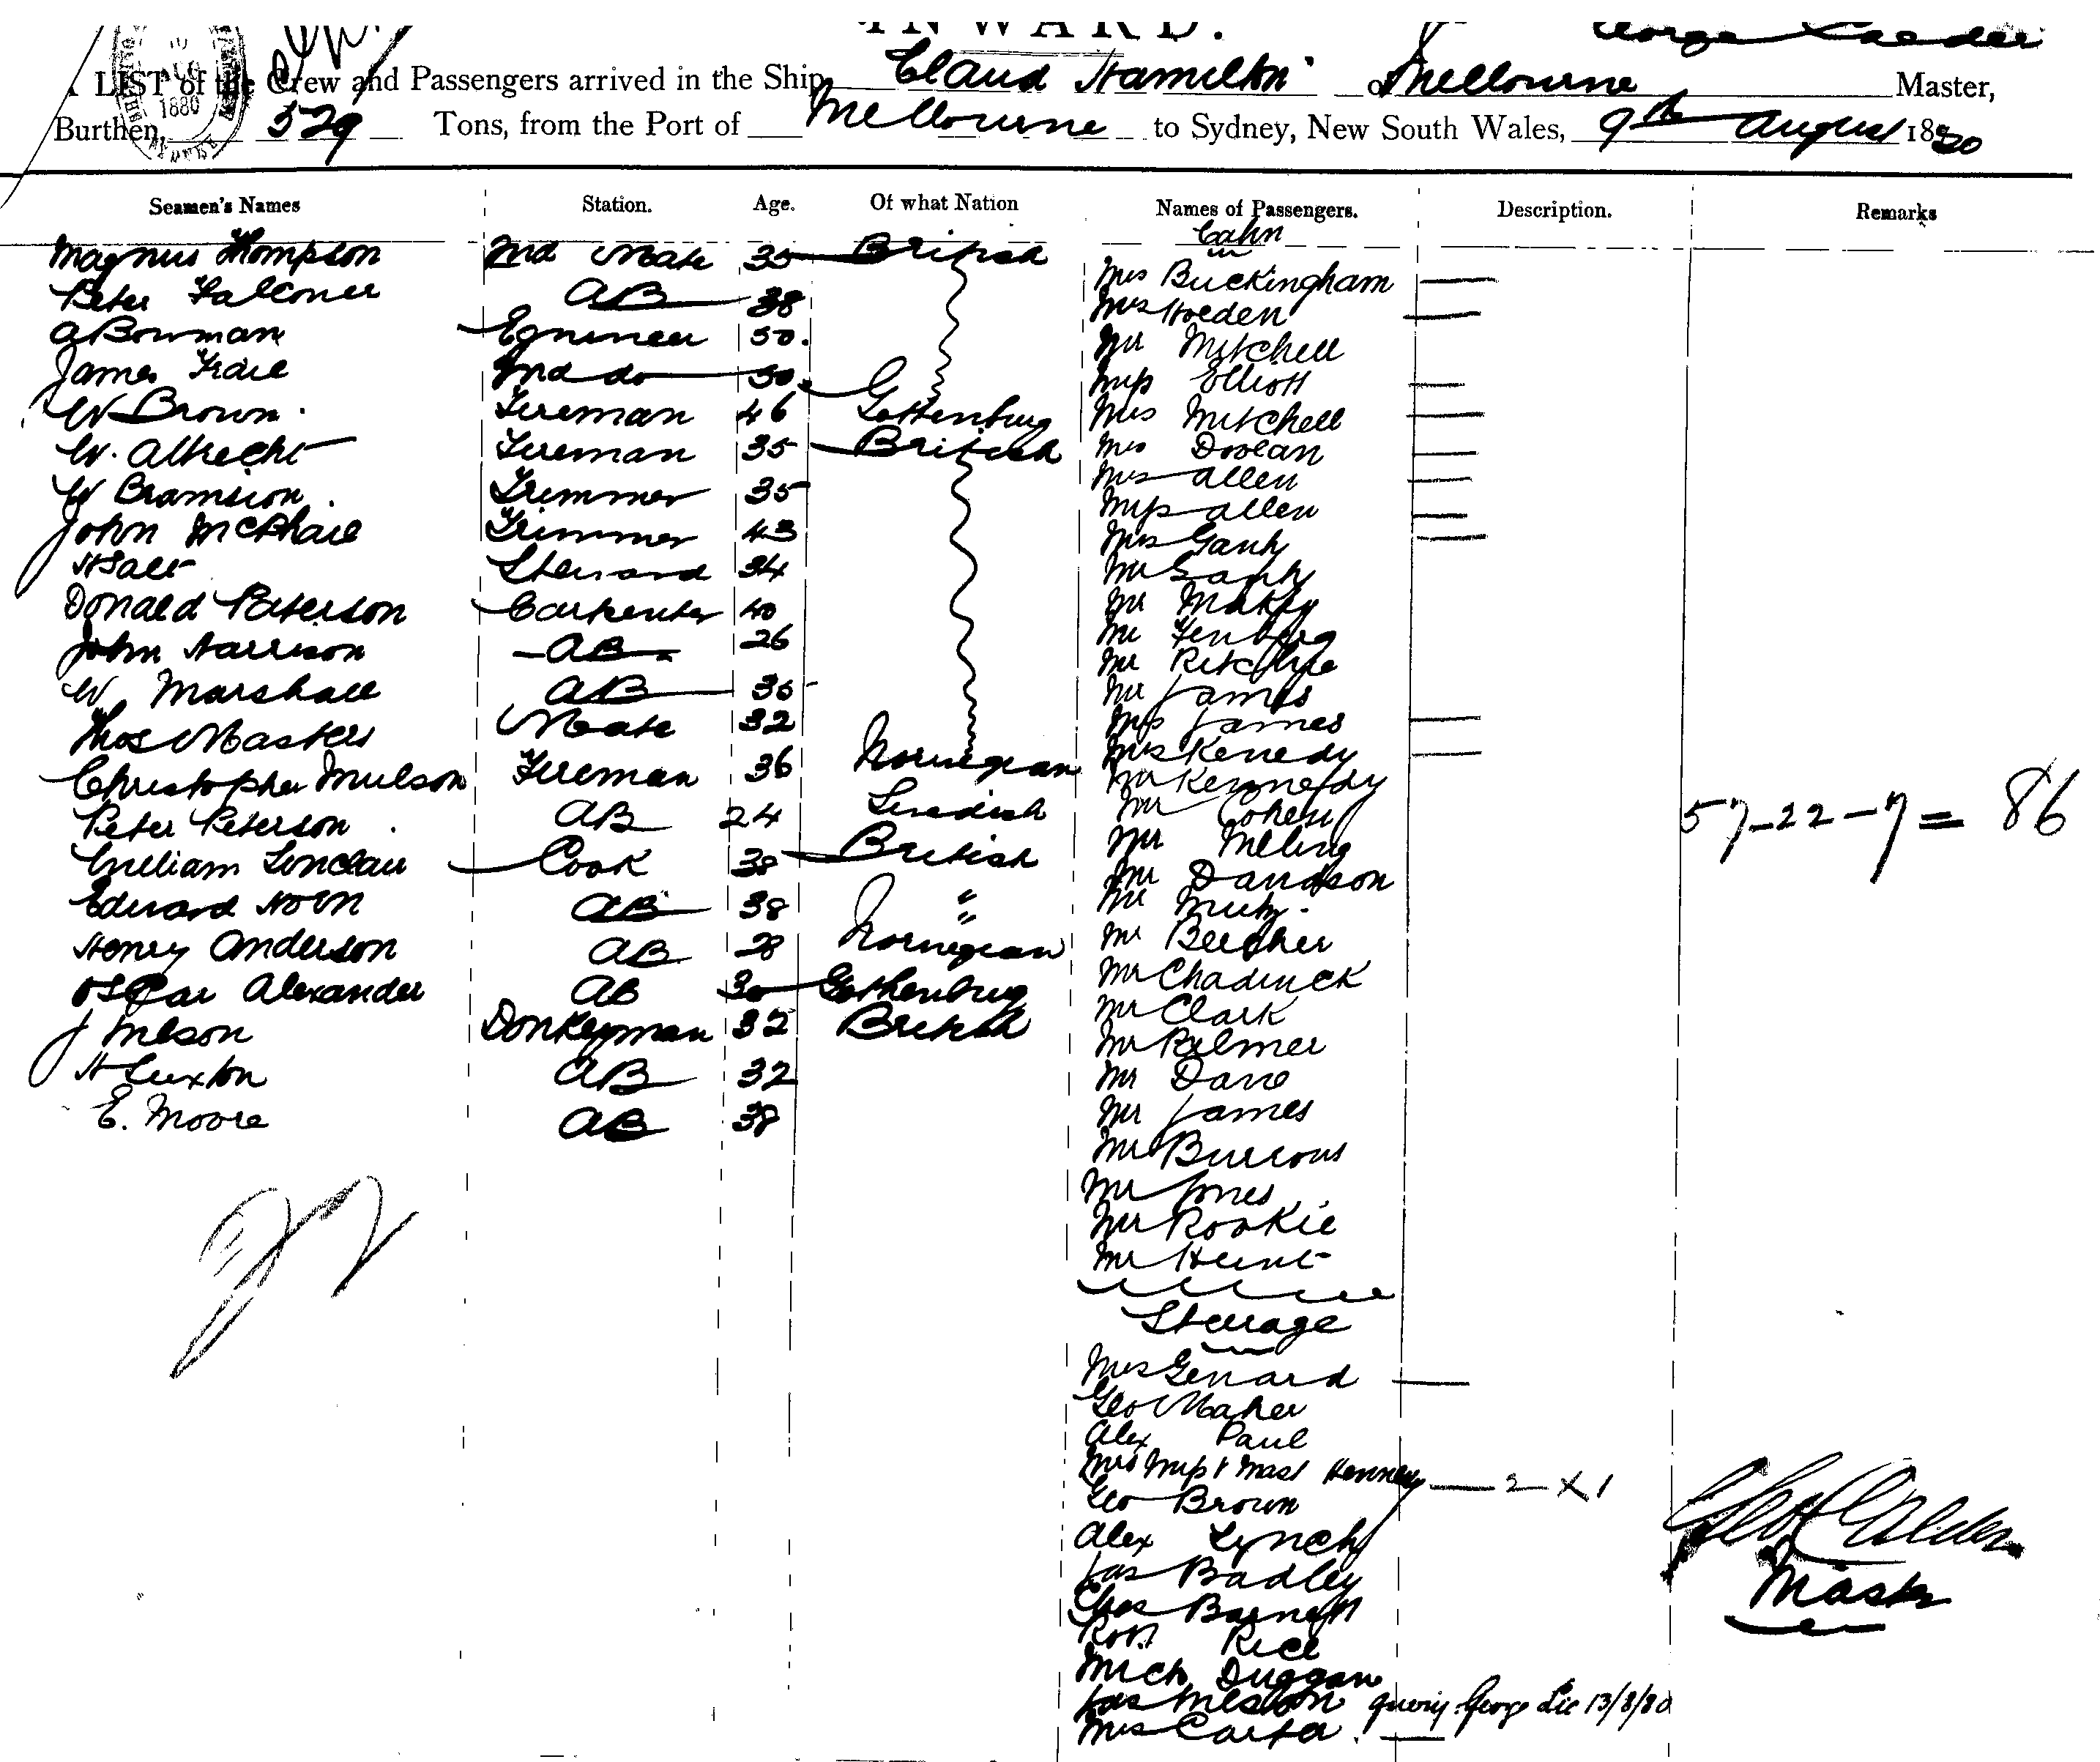 INWARD.
A LIST of the Crew and Passengers arrived in the Ship Claud Hamilton of Melbourne George Calder Master,
Burthen, 529 Tons, from the Port of Melbourne to Sydney, New South Wales, 9th August 1880
1880
Seamen's Names Station. Age. Of what Nation Names of Passengers. Description. Remarks
Magnus Thompson 2nd Mate 35 British
Peter Falconer AB 38
A Bowman Egnineer 50.
James Traie 2nd do 30
W Brown. Fireman 46 Gottenburg
W. Albrecht Fireman 35 British
W Bramsion. Trimmer 35
John McPhail Trimmer 43
H Salt Steward 34
Donald Paterson Carpenter 40
John Harrison AB 26
W. Marshall AB 35
Thos Masters Mate 32
Christopher Mulson Fireman 36 Norwegian
Peter Peterson AB 24 Swedish
William Sinclair Cook 38 British
Edward Horn AB 38 "
Henry Anderson AB 28 Norwegian
Oscar Alexander AB 30 Gothenburg
J Nelson Donkeyman 32 British
H Luxton AB 32
E. Moore AB 38
Cabn
Mrs Buckingham
Mrs Holden
Mr Mitchell
Miss Elliott
Mrs Mitchell
Mrs Doolan
Mrs Allen
Miss Allen
Mrs Ganly
Mr Ganly
Mr
Mr
Mr Ritchie
Mr James
Mrs James
Mrs Kenedy
Mr Kennedy
Mr Cohen
Mr
Mr Davidson
Mr
Mr Beecher
Mr Chadwick
Mr Clark
Mr Palmer
Mr Dave
Mr James
Mr Burrows
Mr Jones
Mr Rookie
Mr Hunt
57-22-7=86
Steerage
Mrs Genard
Geo Maher
Alex Paul
Mrs Miss & Mast Kennedy 2 X 1
Geo Brown
Alex Lynch
Jas Badley
Chas Barnett
Robt Rice
Mich Duggan
Jas query George Lic 13/8/80
Mrs Carter
Geo Calder
Master